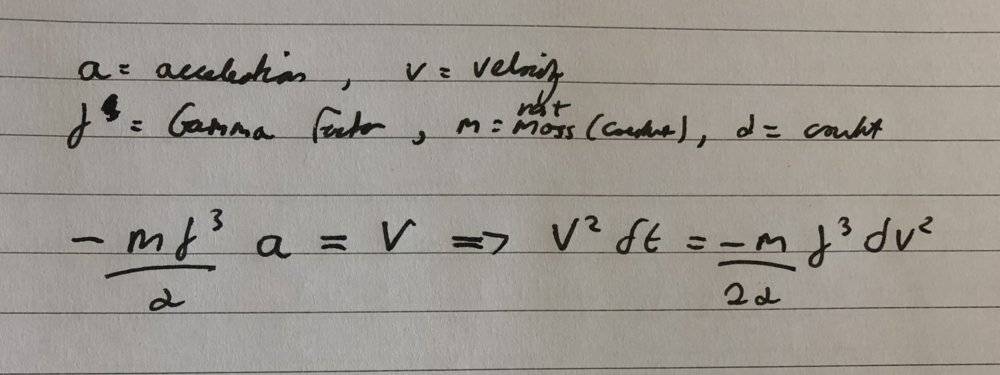 a = acceleration , v = velocity
γ = Gamma factor , m = rest mass (constant), d = constant
- mγ³/d a = v => v² dt = -m/2d γ³ dv²